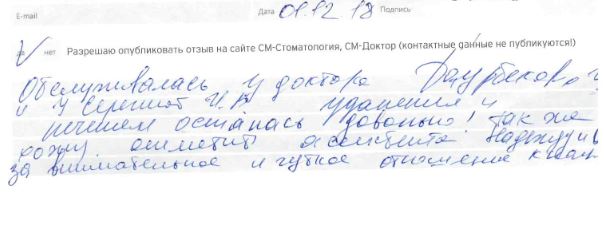 E-mail Дата 01.12 18 Подпись
да нет Разрешаю опубликовать отзыв на сайте СМ-Стоматология, СМ-Доктор (контактные данные не публикуются!)
Обслуживалась у доктора
и у удалением и
лечением осталась довольно! Так же
хочу отметить ассистента
за внимательное и чуткое отношение к